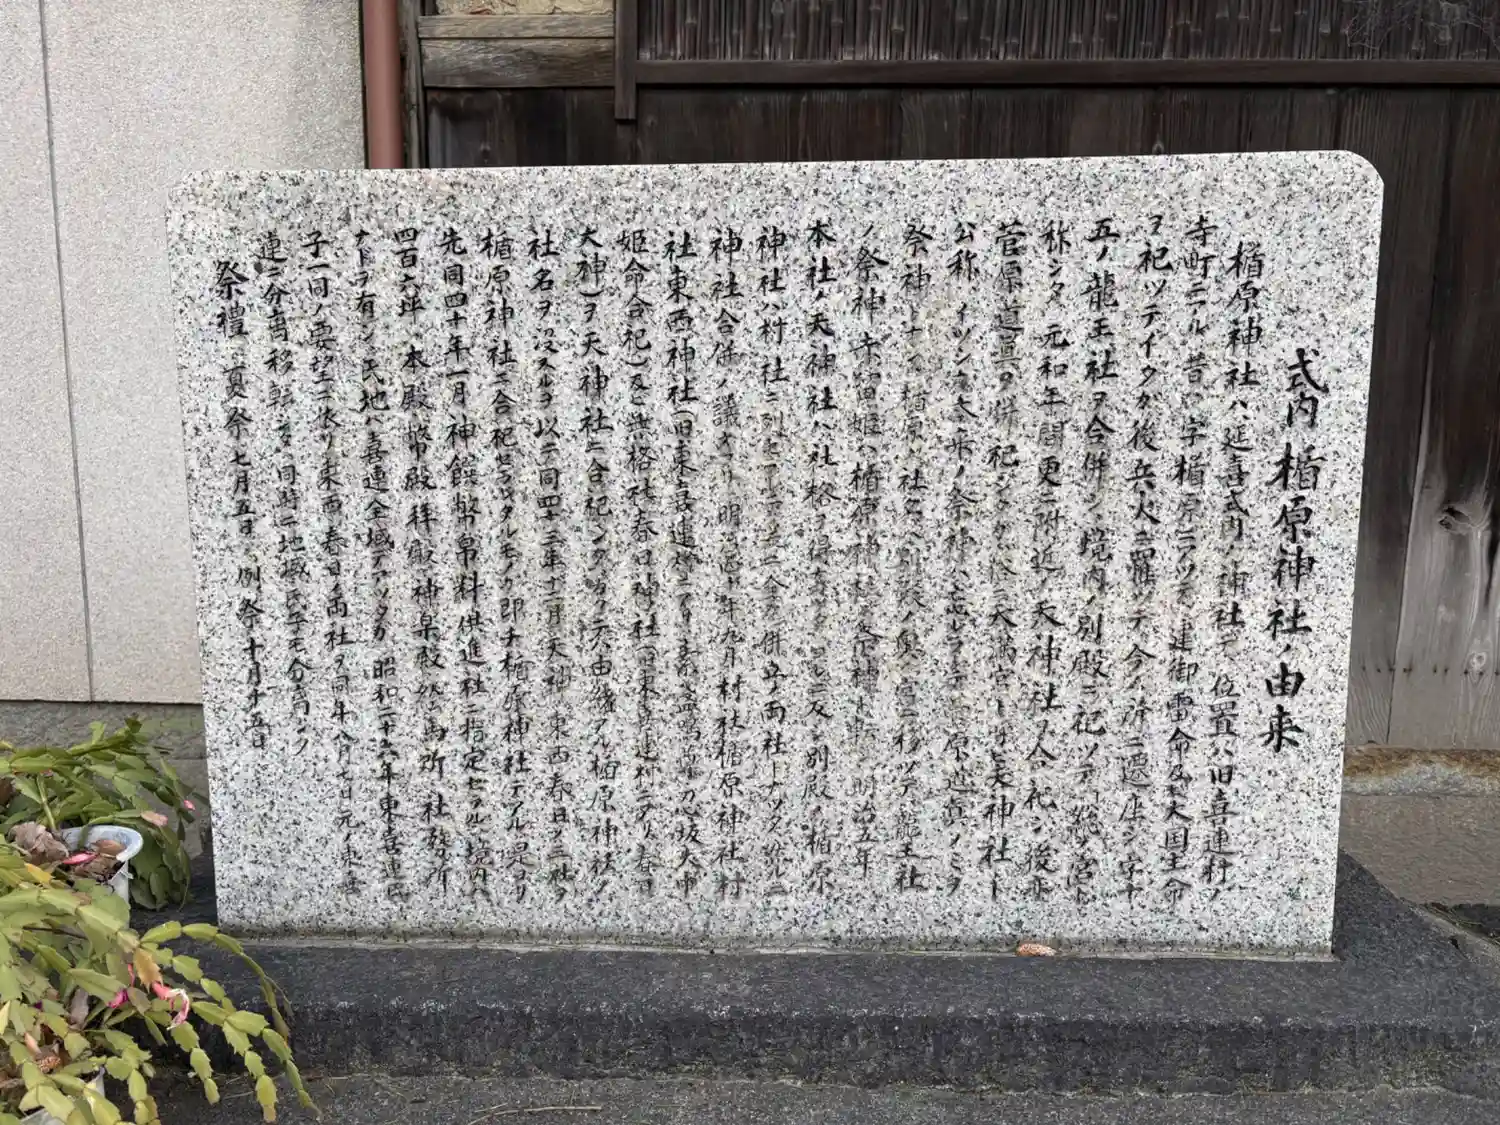 式内楯原神社ノ由来
楯原神社ハ延喜式内ノ神社ニテ位置ハ旧喜連村ノ
寺町ニアル昔ハ字楯原ニアツテ建御雷命及ビ大国主命
ヲ祀ツテイタガ後兵火ニ罹ツテ今ノ所ニ遷座シ字十
五ノ龍王社ヲ合併シ境内ノ別殿ニ祀ツテ総ノ宮ト
称シタ 元和年間更ニ附近ノ天神社ヲ合祀シ後
菅原道真ヲ併祀シタガ俗ニ天満宮ト呼ビ天神社ト
公称 イツシカ本来ノ祭神ハ忘レラレ菅原道真ノミヲ
祭神トナス楯原ノ社 別殿ノ奥ノ宮ニ移ツテ龍王社
ノ祭神赤留姫ハ楯原神社ノ祭神ト転ジ明治五年
本社ノ天神社ハ社格ヲ得 及ビ別殿ノ楯原
神社ハ村社ニ列セラレ 併立ノ両社トナツタ然ルニ
神社合併ノ議アリ明治四十年九月村社楯原神社村
社東西神社(旧東喜連村ニアリ素盞嗚尊 刀坂大神
姫命合祀)及ビ無格社春日神社(旧東喜連村ニアリ春日
大神)ヲ天神社ニ合祀シタ 由緒アル楯原神社ノ
社名ヲ没スルヲ以テ同四十三年十二月天神 東西春日ノ三社ヲ
楯原神社ニ合祀セラレタルモノ 即チ楯原神社デアル是ヨリ
先同四十年一月神饌幣帛料供進社ニ指定セラル 境内ハ
四百六坪 本殿 幣殿 拝殿 神楽殿 社務所
ナドヲ有シ氏地ハ喜連全域デアツタガ 昭和二十六年東喜連氏
子一同ノ要望ニ依リ東西 春日ノ両社ヲ同年八月七日元ノ東喜
連ニ分離移転 同時ニ地域氏子モ分離シタ
祭禮 夏祭七月五日 例祭十月十五日